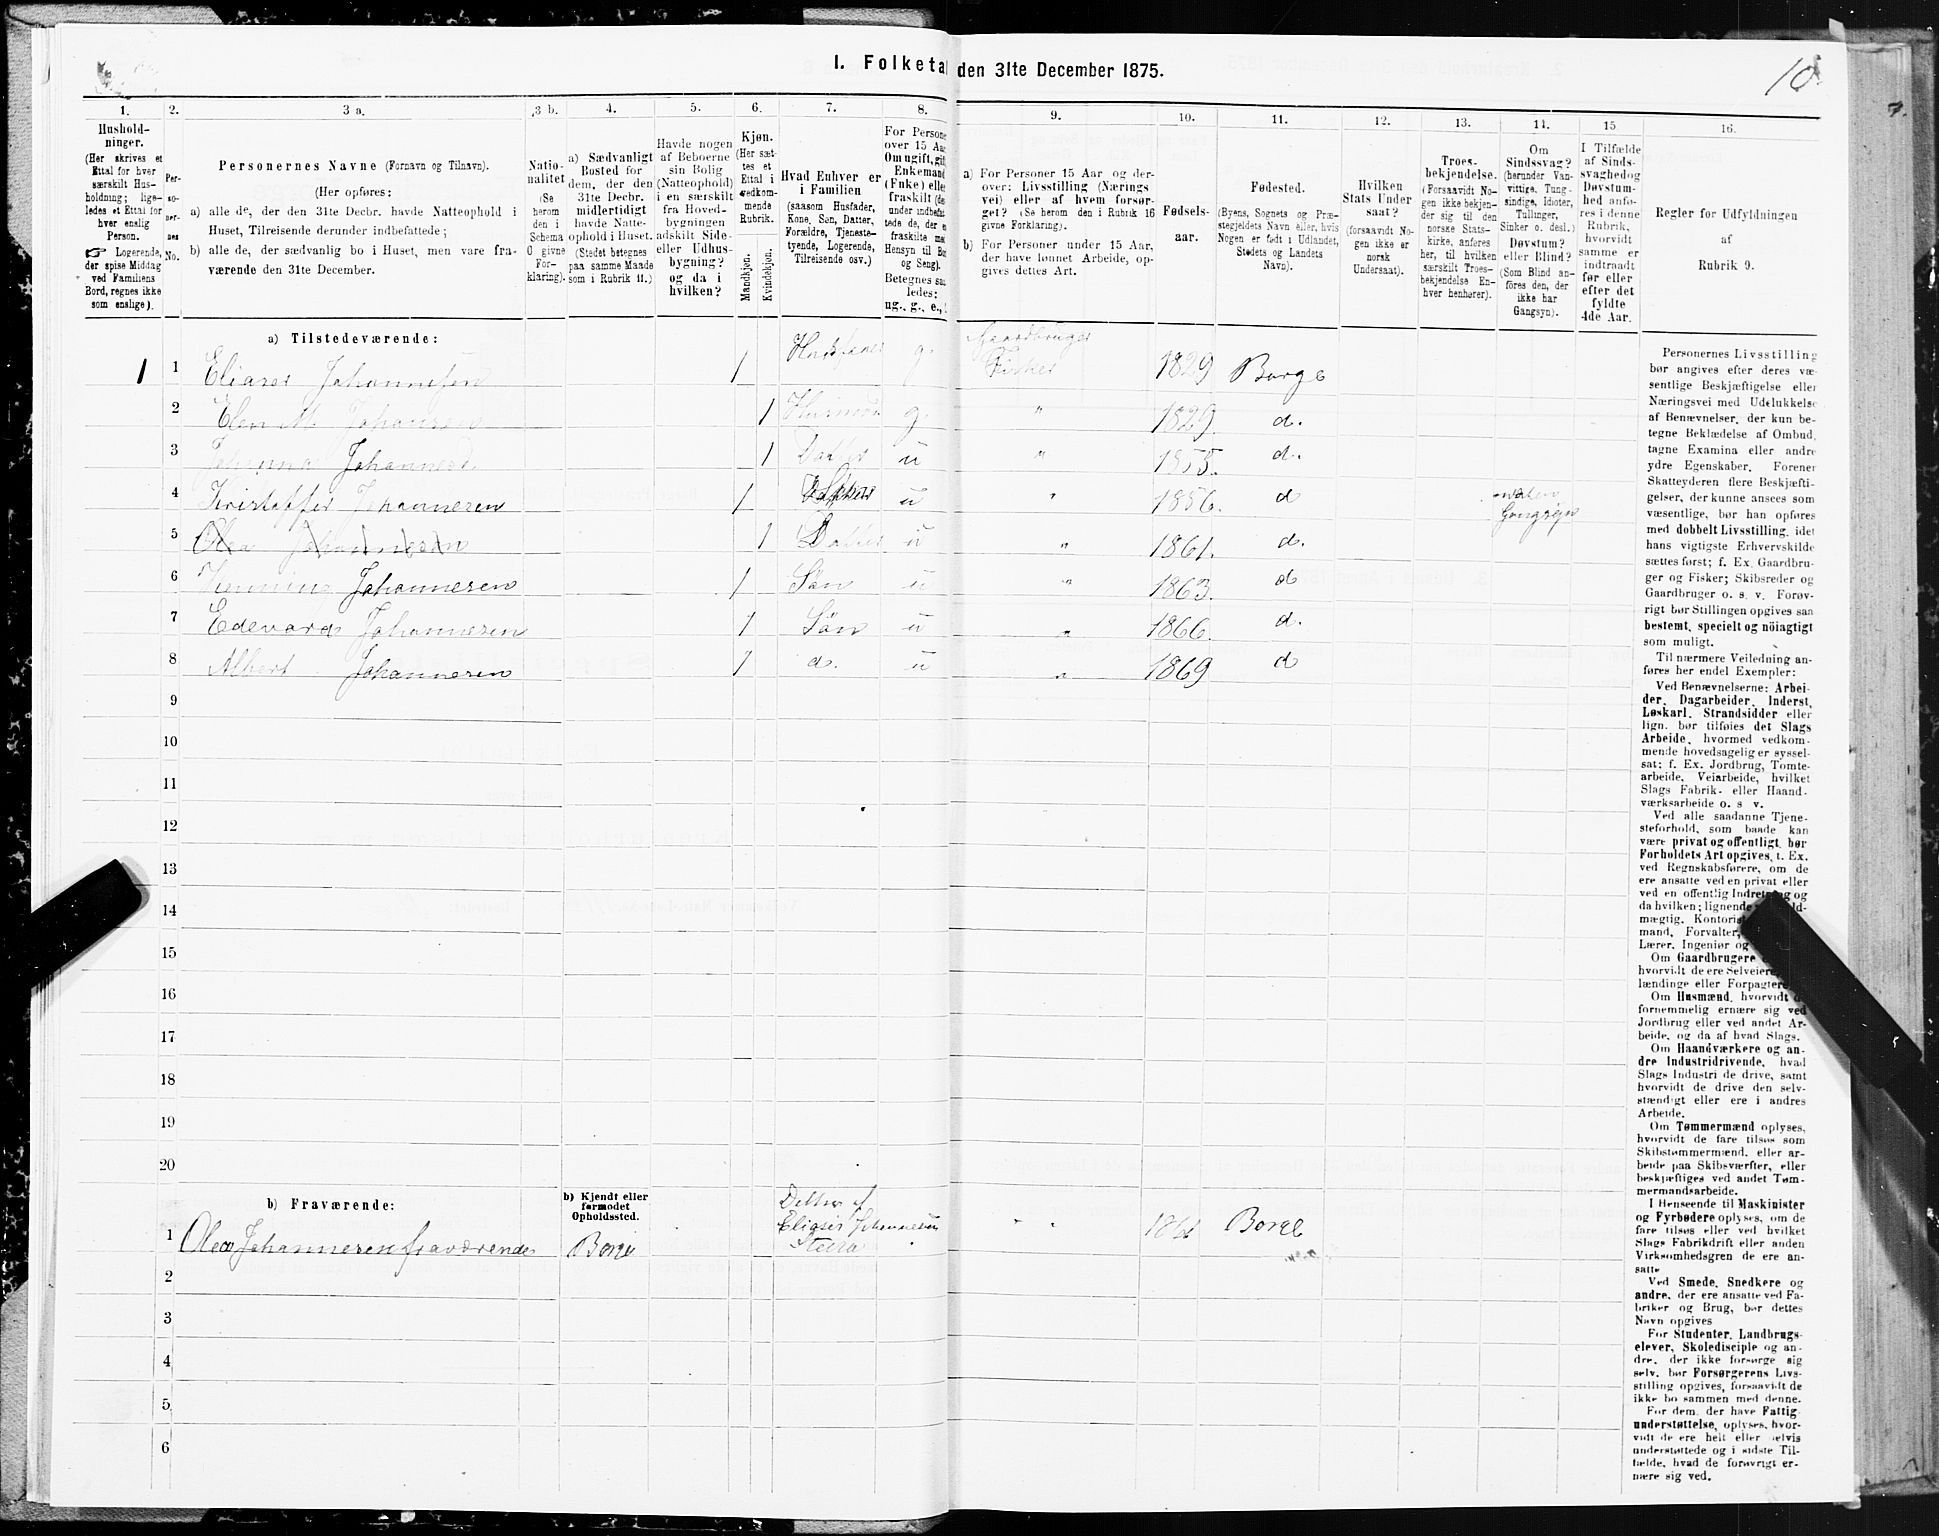 I. Folketa den 31te December 1875.
10
1.
Hushold-
ninger.
(Her skrives et
Ettal for hver
særskilt Hus-
holdning; lige-
ledes et Ettal for
hver enslig
Person.
Logerende,
der spise Middag
ved Familiens
Bord, regnes ikke
som enslige).
2.
Per-
so-
ner-
nes
No.
3 a.
Personernes Navne (Fornavn og Tilnavn).
(Her opføres:
a) alle de, der den 31te Decbr. havde Natteophold i
Huset, Tilreisende derunder indbefattede;
b) alle de, der sædvanlig bo i Huset, men vare fra-
værende den 31te December.
3 b.
Natio-
nalitet
(Se
herom
den i
Schema
O givne
For-
klaring).
4.
a) Sædvanligt
Bosted for
dem, der den
31te Decbr.
midlertidigt
havde Natte-
ophold i Huset.
(Stedet betegnes
paa samme Maade
som i Rubrik 11.)
5.
Havde nogen
af Beboerne
sin Bolig
(Natteophold)
i en særskilt
fra Hoved-
bygningen
adskilt Side-
eller Udhus-
bygning?
og da i
hvilken?
6.
Kjøn.
(Her sæt-
tes et
Ettal i
vedkom-
mende
Rubrik.
Mandkjøn.
Kvindekjøn.
7.
Hvad Enhver er
i Familien
(saasom Husfader,
Kone, Søn, Datter,
Forældre, Tjeneste-
tyende, Logerende,
Tilreisende osv.)
8.
For Persone
over 15 Aar
Om ugift, gift
Enkemand
(Enke) eller
fraskilt (de
under indbefat
tede de, der e
fraskilte me
Hensyn til Bo
og Seng).
Betegnes saa
ledes:
ug., g., e.,
9.
a) For Personer 15 Aar og der-
over: Livsstilling (Nærings
vei) eller af hvem forsør-
get? (Se herom den i Rubrik 16
givne Forklaring).
b) For Personer under 15 Aar,
der have lønnet Arbeide, op-
gives dettes Art.
10.
Fødsels-
aar.
11.
Fødested.
(Byens, Sognets og Præ-
stegjeldets Navn eller, hvis
Nogen er født i Udlandet,
Stedets og Landets
Navn).
12.
Hvilken
Stats Under
saat?
(forsaavidt No-
gen ikke er
norsk
Undersaat).
13.
Troes-
bekjendelse.
(Forsaavidt No-
gen ikke bekjen-
der sig til den
norske Stats-
kirke, anføres
her, til hvilken
særskilt Troes-
bekjendelse En-
hver henhører).
14.
Om
Sindssvag?
(herunder Van-
vittige, Tung-
sindige, Idioter,
Tullinger,
Sinker o. desl.)
Døvstum?
eller Blind?
(Som Blind an-
føres den, der
ikke har
Gangsyn).
15
I Tilfælde
af Sinds-
svaghed og
Døvstum-
hed anfø-
res i denne
Rubrik,
hvorvidt
samme er
indtraadt
før eller
efter det
fyldte
4de Aar.
16.
Regler for Udfyldningen
af
Rubrik 9.
a) Tilstedeværende:
1 1 Eliaser Johannesen 1 Husfader g. Gaardbruger
Fisker 1829 Borge
2 Elen M. Johansen 1 Husmor g. " 1829. d.
3 Johanna Johannesd 1 Datter u " 1855. d.
4 Kristoffer Johannesen 1 u " 1856. d uden
Gangsyn
5 Olea Johannesen 1 Datter u " 1861. d.
6 Henning Johannesen 1 Søn u " 1863. d
7 Edevard Johannesen 1 Søn u " 1866. d.
8 Albert Johannesen 1 d. u " 1869 d
9
10
11
12
13
14
15
16
17
18
19
20
b) Fraværende:
b) Kjendt eller
formodet
Opholdssted.
1 Olea Johannesen fraværende Borge Datter af
Eliaser Johannesen
Steira " " 1861 Borge
2
3
4
5
6
Personernes Livsstilling
bør angives efter deres væ-
sentlige Beskjæftigelse eller
Næringsvei med Udelukkelse
af Benævnelser, der kun be-
tegne Beklædelse af Ombud,
tagne Examina eller andre
ydre Egenskaber. Forener
Skatteyderen flere Beskjæfti-
gelser, der kunne ansees som
væsentlige, bør han opføres
med dobbelt Livsstilling, idet
hans vigtigste Erhvervskilde
sættes først; f. Ex. Gaardbru-
ger og Fisker; Skibsreder og
Gaardbruger o. s. v. Forøv-
rigt bør Stillingen opgives saa
bestemt, specielt og nöiagtigt
som muligt.
Til nærmere Veiledning an-
føres her endel Exempler:
Ved Benævnelserne: Arbei-
der, Dagarbeider, Inderst,
Løskarl, Strandsidder eller
lign. bør tilføies det Slags
Arbeide, hvormed vedkom-
mende hovedsagelig er syssel-
sat; f. Ex. Jordbrug, Tomte-
arbeide, Veiarbeide, hvilket
Slags Fabrik- eller Haand-
værksarbeide o. s v.
Ved alle saadanne Tjene-
steforhold, som baade kan
være privat og offentligt, bør
Forholdets Art opgives, t. Ex.
ved Regnskabsførere, om de
ere ansatte ved en privat eller
ved en offentlig Indretning og
da hvilken; lignende ld-
mægtig, Kontoris
mand, Forvalter,
Lærer, Ingeniør og
Om Gaardbrugere
hvorvidt de ere Selveiere,
lændinge eller Forpagtere.
Om Husmænd, hvorvidt d
fornemmelig ernære sig ved
Jordbrug eller ved andet Ar-
beide, og da af hvad Slags.
Om Haandværkere og an-
dre Industridrivende, hvad
Slags Industri de drive, samt
hvorvidt de drive den selv-
stændigt eller ere i andres
Arbeide.
Om Tømmermænd oplyses,
hvorvidt de fare tilsøs som
Skibstømmermænd, eller ar-
beide paa Skibsværfter, eller
beskjæftiges ved andet Tøm-
mermandsarbeide.
I Henseende til Maskinister
og Fyrbødere oplyses, om de
fare tilsøs eller ved hvilket
Slags Fabrikdrift eller anden
Virksomhedsgren de ere an-
satte
Ved Smede, Snedkere og
andre, der ere ansatte ved Fa-
briker og Brug, bør dettes
Navn opgives
For Studenter, Landbrugs-
elever, Skoledisciple og an-
dre, der ikke forsørge sig
selv, bør Forsørgerens Livs-
stilling opgives, forsaavidt de
ikke bo sammen med denne.
For dem, der have Fattig-
understøttelse, oplyses, hvor-
vidt de ere helt eller delvis
understøttede og i sidste Til-
fælde, hvad de forøvrigt er-
nære sig ved.